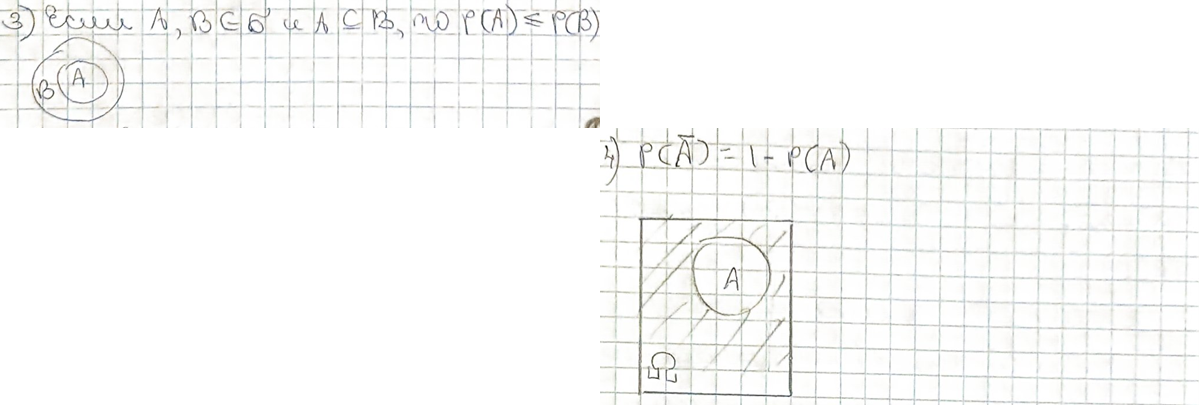 3) Если A, B ∈ Б и A ⊆ B, то P(A) ≤ P(B)
B A
4) P(Ā) = 1 - P(A)
A
Ω